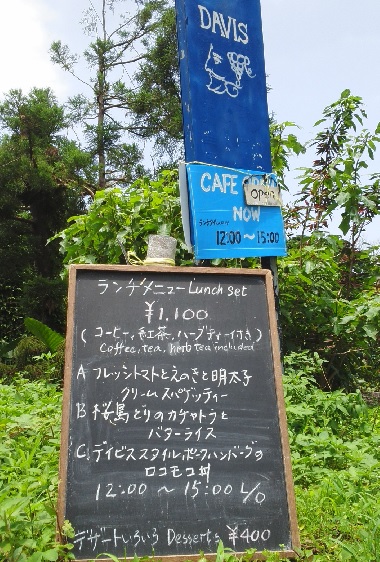 DAVIS
CAFE
OPEN
NOW
ランチタイム
12:00 ~ 15:00
ランチメニュー Lunch set
¥1,100
(コーヒー、紅茶、ハーブティー付き)
Coffee, tea, herb tea included
A フレッシュトマトとえのきと明太子
クリームスパゲッティー
B 桜島どりのカチャトラと
バターライス
C デイビススタイルポークハンバーグの
ロコモコ丼
12:00 ~ 15:00 L/O
デザートいろいろ Desserts ¥400